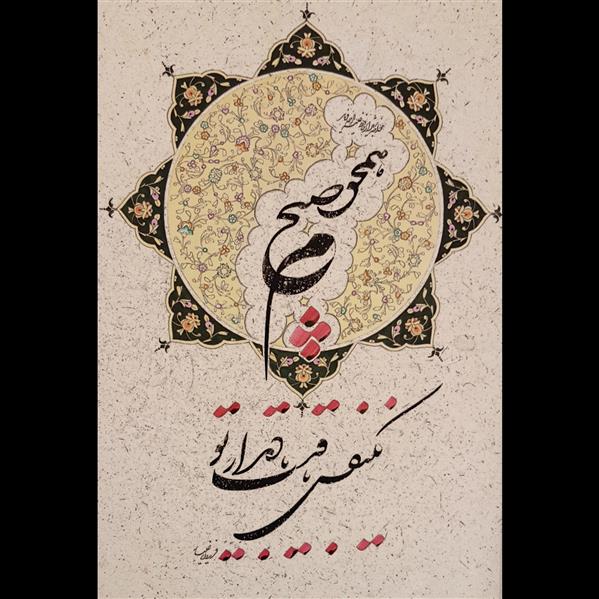 همچو صبحم
یکنفس باقیست با دیدار تو